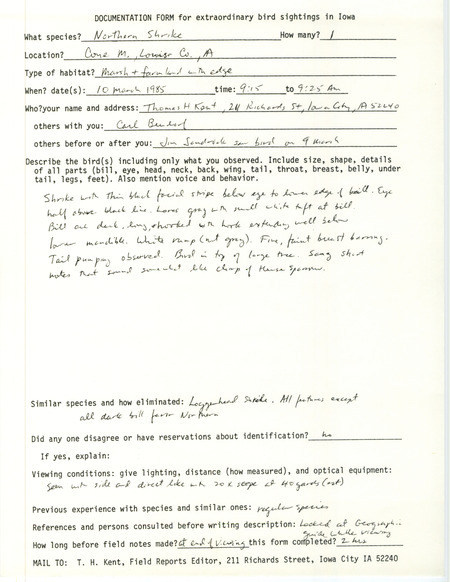 DOCUMENTATION FORM for extraordinary bird sightings in Iowa
What species? Northern Shrike How many? 1
Location? Cone M., Louisa Co., IA
Type of habitat? Marsh + farm land with edge
When? date(s): 10 March 1985 time: 9:15 to 9:25 AM
Who?your name and address: Thomas H Kent, 211 Richards St, Iowa City, IA 52240
others with you: Carl
others before or after you: Jim saw bird on 9 March
Describe the bird(s) including only what you observed. Include size, shape, details
of all parts (bill, eye, head, neck, back, wing, tail, throat, breast, belly, under
tail, legs, feet). Also mention voice and behavior.
Shrike with thin black facial stripe below eye to lower edge of bill. Eye
half above black line, Lores gray with small white tuft at bill.
Bill all dark, long, hooked with hook extending well below
lower mandible. White rump (not gray). Fine, faint breast barring.
Tail pumping observed. Bird in top of large tree. Sang short
notes that sound somewhat like chirp of House Sparrow.
Similar species and how eliminated: Loggerhead Shrike. All features except
all dark bill favor Northern
Did any one disagree or have reservations about identification? no
If yes, explain:
Viewing conditions: give lighting, distance (how measured), and optical equipment:
Seen with side and direct light with 20x scope at 40 yards (est)
Previous experience with species and similar ones: regular species
References and persons consulted before writing description: Looked at Geographic
guide while viewing
How long before field notes made? at end of viewing this form completed? 2 hrs
MAIL TO: T. H. Kent, Field Reports Editor, 211 Richards Street, Iowa City IA 52240